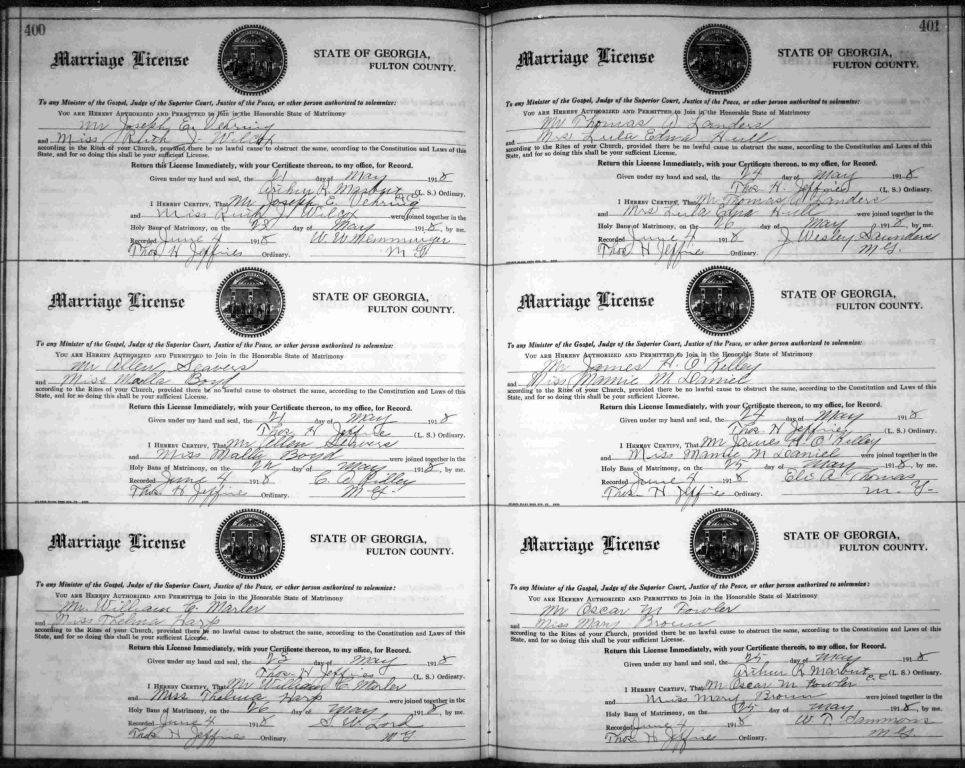 400
Marriage License
STATE OF GEORGIA,
FULTON COUNTY.
To any Minister of the Gospel, Judge of the Superior Court, Justice of the Peace, or other person authorized to solemnize:
YOU ARE HEREBY AUTHORIZED AND PERMITTED to Join in the Honorable State of Matrimony
Mr Joseph E. Vehring
and Miss Ruth J Wilcox
according to the Rites of your Church, provided there be no lawful cause to obstruct the same, according to the Constitution and Laws of this
State, and for so doing this shall be your sufficient License.
Return this License Immediately, with your Certificate thereon, to my office, for Record.
Given under my hand and seal, the 21 day of May 1918
Arthur R Marbut (L. S.) Ordinary.
I HEREBY CERTIFY, That Mr Joseph E. Vehring
and Miss Ruth J Wilcox were joined together in the
Holy Bans of Matrimony, on the 23 day of May 1918, by me.
Recorded June 4 1918 W W Memminger
Thos H Jeffries Ordinary. M G
Marriage License
STATE OF GEORGIA,
FULTON COUNTY.
To any Minister of the Gospel, Judge of the Superior Court, Justice of the Peace, or other person authorized to solemnize:
YOU ARE HEREBY AUTHORIZED AND PERMITTED to Join in the Honorable State of Matrimony
Mr Allen Seavers
and Miss Boyd
according to the Rites of your Church, provided there be no lawful cause to obstruct the same, according to the Constitution and Laws of this
State, and for so doing this shall be your sufficient License.
Return this License Immediately, with your Certificate thereon, to my office, for Record.
Given under my hand and seal, the 21 day of May 1918
Thos H Jeffries (L. S.) Ordinary.
I HEREBY CERTIFY, That Mr Allen Seavers
and Miss Boyd were joined together in the
Holy Bans of Matrimony, on the day of May 1918, by me.
Recorded June 4 1918 Ridley
Thos H Jeffries Ordinary. M G
Marriage License
STATE OF GEORGIA,
FULTON COUNTY.
To any Minister of the Gospel, Judge of the Superior Court, Justice of the Peace, or other person authorized to solemnize:
YOU ARE HEREBY AUTHORIZED AND PERMITTED to Join in the Honorable State of Matrimony
Mr. William C. Marler
and Miss Thelma Harp
according to the Rites of your Church, provided there be no lawful cause to obstruct the same, according to the Constitution and Laws of this
State, and for so doing this shall be your sufficient License.
Return this License Immediately, with your Certificate thereon, to my office, for Record.
Given under my hand and seal, the 23 day of May 1918
Thos H Jeffries (L. S.) Ordinary.
I HEREBY CERTIFY, That Mr William C Marler
and Miss Thelma Harp were joined together in the
Holy Bans of Matrimony, on the 26 day of May 1918, by me.
Recorded June 4 1918 S. W. Lord
Thos H Jeffries Ordinary. M G
401
Marriage License
STATE OF GEORGIA,
FULTON COUNTY.
To any Minister of the Gospel, Judge of the Superior Court, Justice of the Peace, or other person authorized to solemnize:
YOU ARE HEREBY AUTHORIZED AND PERMITTED to Join in the Honorable State of Matrimony
Mr Thomas W Landers
and Mrs Lula Edna Hull
according to the Rites of your Church, provided there be no lawful cause to obstruct the same, according to the Constitution and Laws of this
State, and for so doing this shall be your sufficient License.
Return this License Immediately, with your Certificate thereon, to my office, for Record.
Given under my hand and seal, the 24 day of May 1918
Thos H. Jeffries (L. S.) Ordinary.
I HEREBY CERTIFY, That Mr Thomas W Landers
and Mrs Lula Edna Hull were joined together in the
Holy Bans of Matrimony, on the 26 day of May 1918, by me.
Recorded June 4 1918 J Wesley Saunders
Thos H Jeffries Ordinary. M G.
Marriage License
STATE OF GEORGIA,
FULTON COUNTY.
To any Minister of the Gospel, Judge of the Superior Court, Justice of the Peace, or other person authorized to solemnize:
YOU ARE HEREBY AUTHORIZED AND PERMITTED to Join in the Honorable State of Matrimony
Mr James H. O'Kelley
and Miss Mamie McDaniel
according to the Rites of your Church, provided there be no lawful cause to obstruct the same, according to the Constitution and Laws of this
State, and for so doing this shall be your sufficient License.
Return this License Immediately, with your Certificate thereon, to my office, for Record.
Given under my hand and seal, the 24 day of May 1918
Thos H Jeffries (L. S.) Ordinary.
I HEREBY CERTIFY, That Mr James H O'Kelley
and Miss Mamie McDaniel were joined together in the
Holy Bans of Matrimony, on the 25 day of May 1918, by me.
Recorded June 4 1918 Eli A Thomas
Thos H Jeffries Ordinary. M. G.
Marriage License
STATE OF GEORGIA,
FULTON COUNTY.
To any Minister of the Gospel, Judge of the Superior Court, Justice of the Peace, or other person authorized to solemnize:
YOU ARE HEREBY AUTHORIZED AND PERMITTED to Join in the Honorable State of Matrimony
Mr Oscar M Fowler
and Miss Mary Brown
according to the Rites of your Church, provided there be no lawful cause to obstruct the same, according to the Constitution and Laws of this
State, and for so doing this shall be your sufficient License.
Return this License Immediately, with your Certificate thereon, to my office, for Record.
Given under my hand and seal, the 25 day of May 1918
Arthur R Marbut C. C. (L. S.) Ordinary.
I HEREBY CERTIFY, That Mr Oscar M Fowler
and Miss Mary Brown were joined together in the
Holy Bans of Matrimony, on the 25 day of May 1918, by me.
Recorded June 4 1918 W T Sammons
Thos H Jeffries Ordinary. M G.